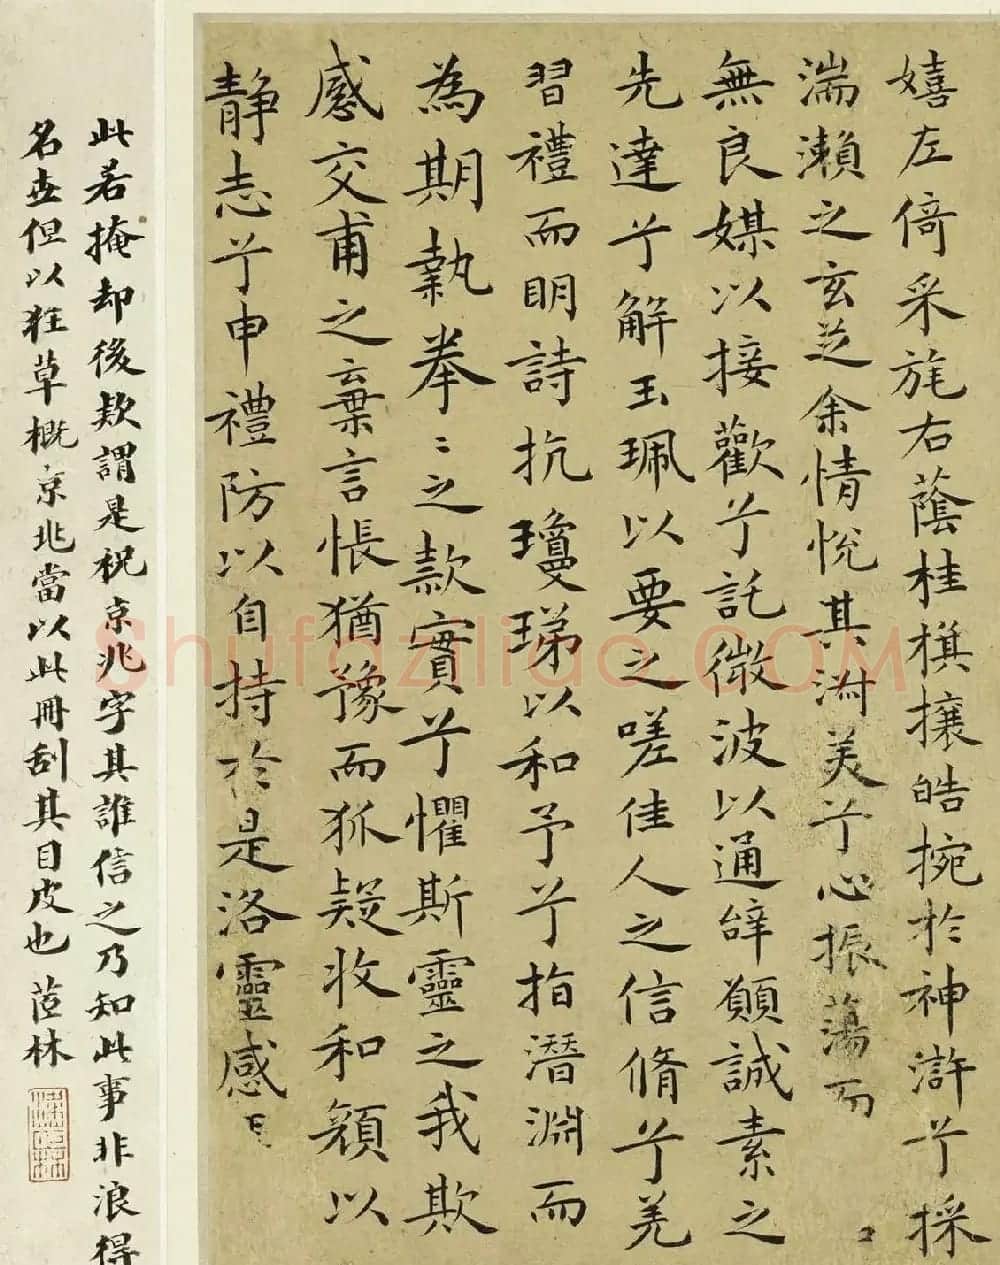 嬉左倚采旄右蔭桂旗攘皓捥於神滸兮採
湍瀨之玄芝余情悅其淑美兮心振蕩而
無良媒以接歡兮託微波以通辭願誠素之
先達兮解玉珮以要之嗟佳人之信脩兮羌
習禮而明詩抗瓊珶以和予兮指潛淵而
為期執拳〻之款實兮懼斯靈之我欺
感交甫之棄言悵猶豫而狐疑收和顏以
静志兮申禮防以自持於是洛靈感
此若掩却後欵謂是祝京兆字其誰信之乃知此事非浪得
名世但以狂草概京兆當以此冊刮其目皮也 茝林
Shufaziliao.COM